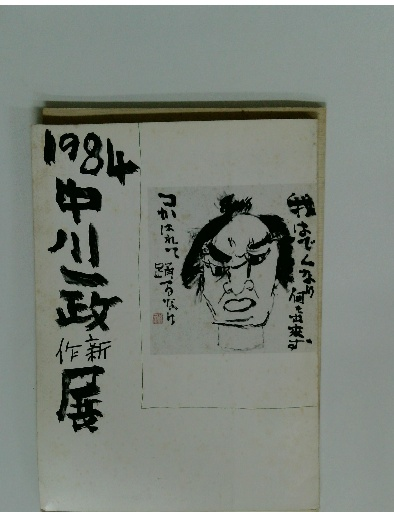 1984
中川一政
新作
展
我はでくなり
何も出来ず
つかはれて
踊るなり